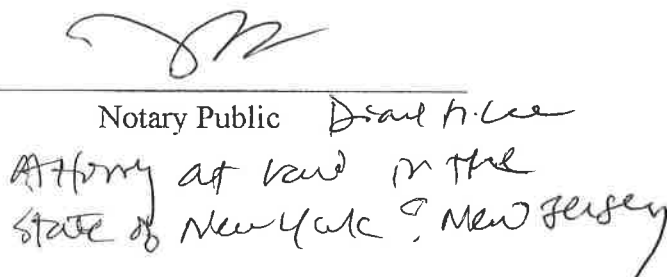 Notary Public Diane H. Lee
Attorney at Law in the
State of New York & New Jersey